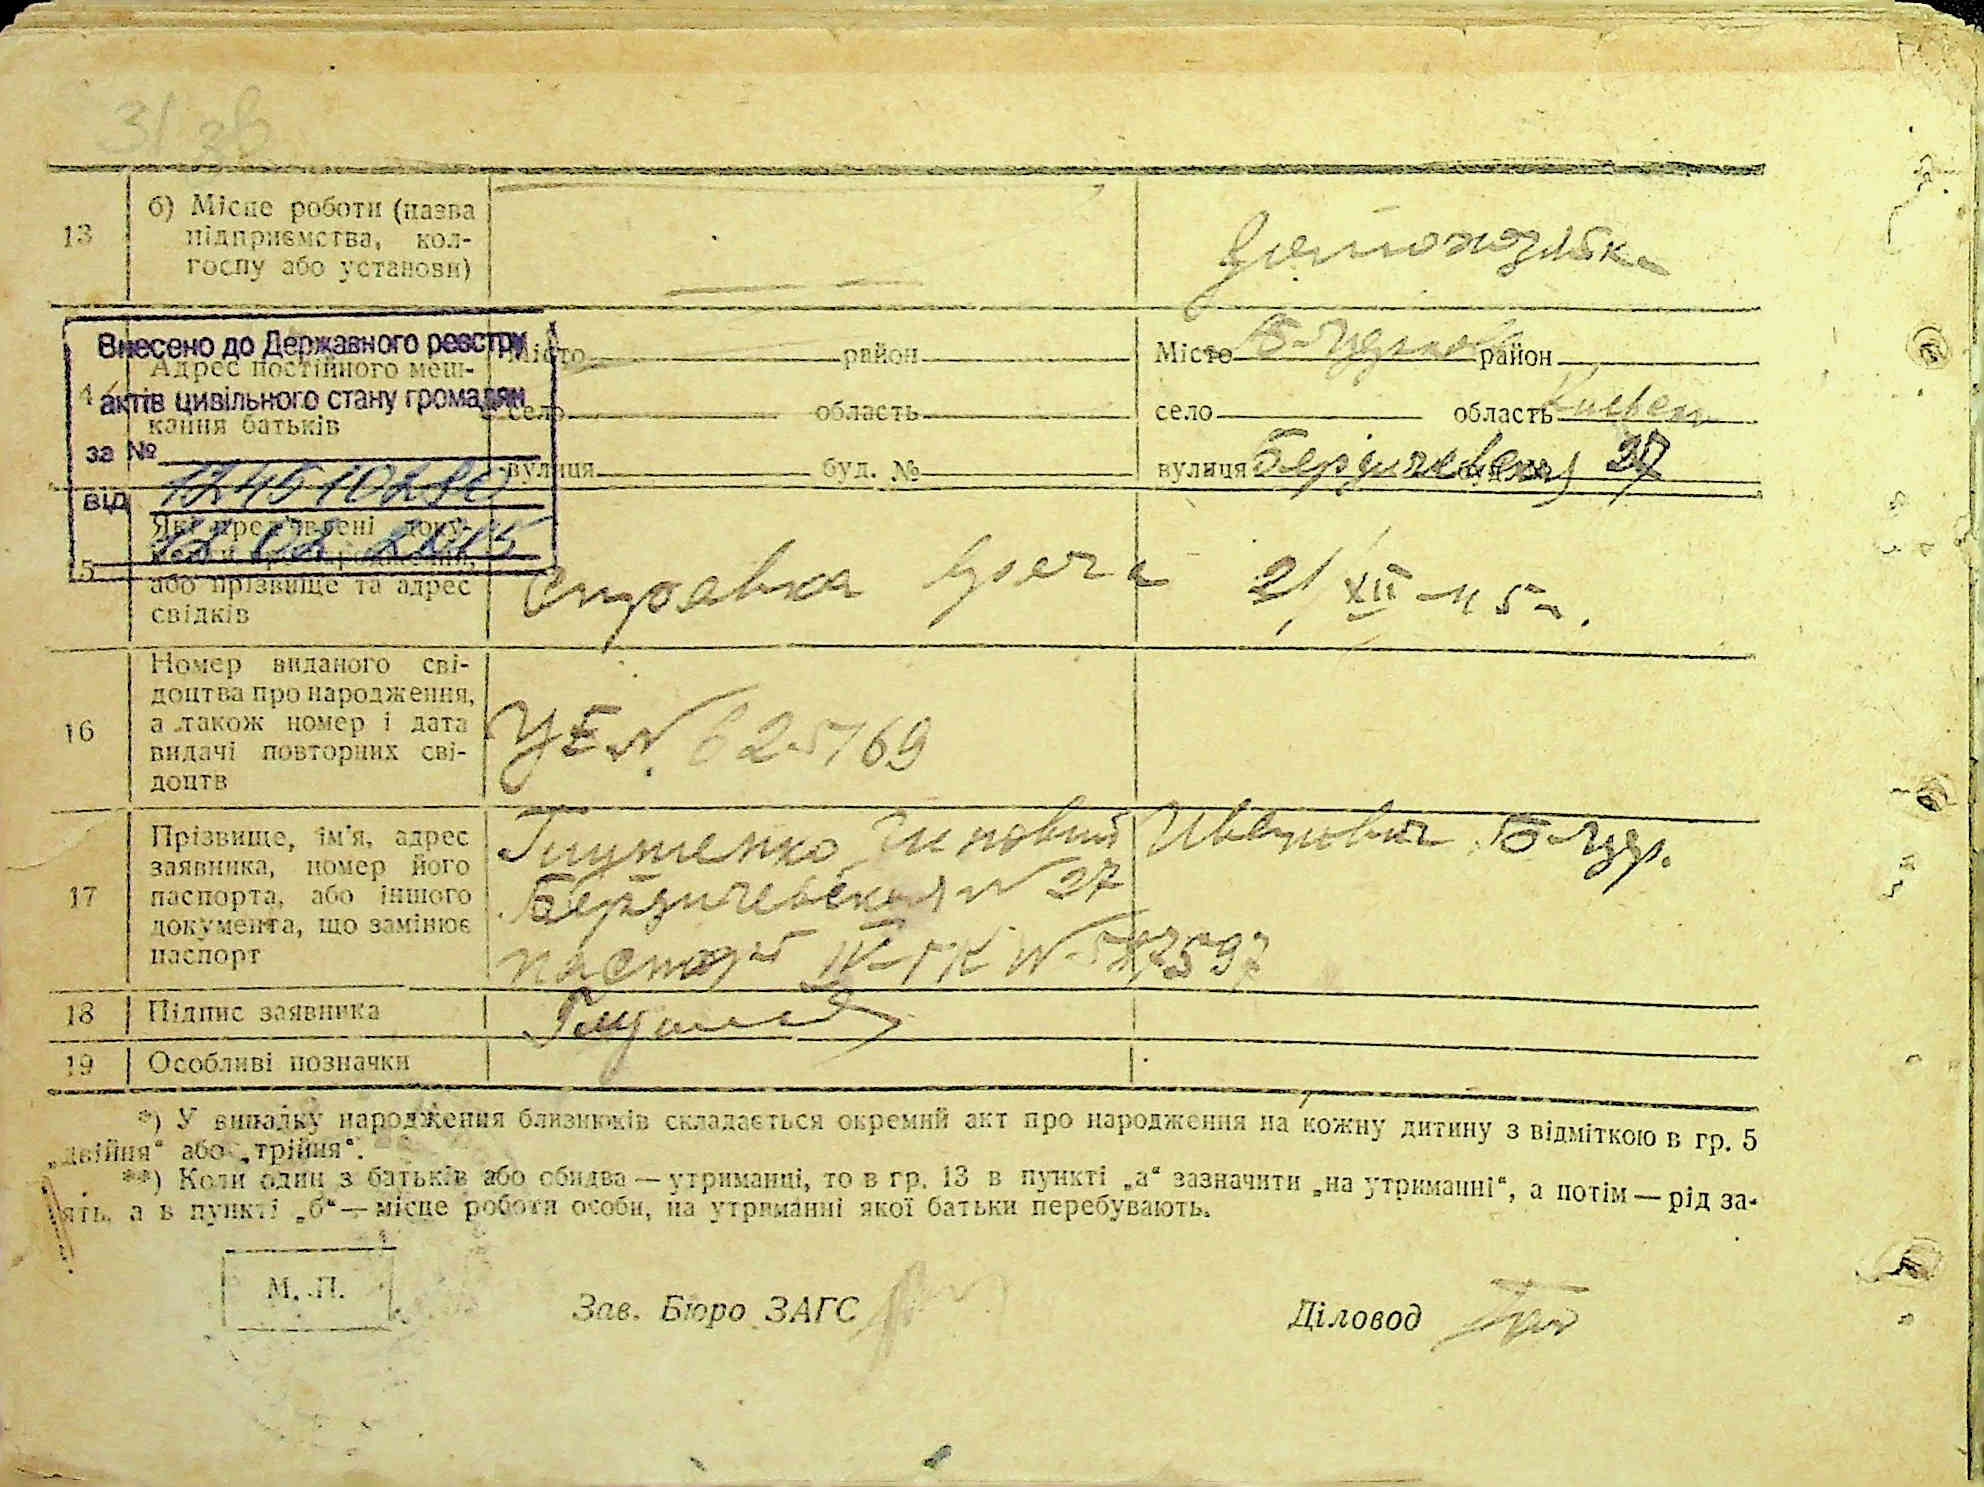 31 зв
13
б) Місце роботи (назва
підприємства, кол-
госпу або установи)
домохозяйка
Внесено до Державного реєстру
актів цивільного стану громадян
за № 1245 10280
від 12 02 2015
Адрес постійного меш-
кання батьків
Місто район
село область
вулиця буд. №
Місто Б-Церковь район
село область Киевск
вулиця Бердичевская 27
5
Які пред'явлені доку-
або прізвище та адрес
свідків
Справка врача 21/XII-45 г.
16
Номер виданого сві-
доцтва про народження,
а також номер і дата
видачі повторних сві-
доцтв
УЕ № 625769
17
Прізвище, ім'я, адрес
заявника, номер його
паспорта, або іншого
документа, що замінює
паспорт
Глущенко Зиновий Иванович Б-Цер.
Бердичевская № 27
паспорт IV-ГК № 517597
18
Підпис заявника
19
Особливі позначки
*) У випадку народження близнюків складається окремий акт про народження на кожну дитину з відміткою в гр. 5
„двійня“ або „трійня“.
**) Коли один з батьків або обидва — утриманці, то в гр. 13 в пункті „а“ зазначити „на утриманні“, а потім — рід за-
ять, а в пункті „б“ — місце роботи особи, на утриманні якої батьки перебувають.
М. П.
Зав. Бюро ЗАГС
Діловод